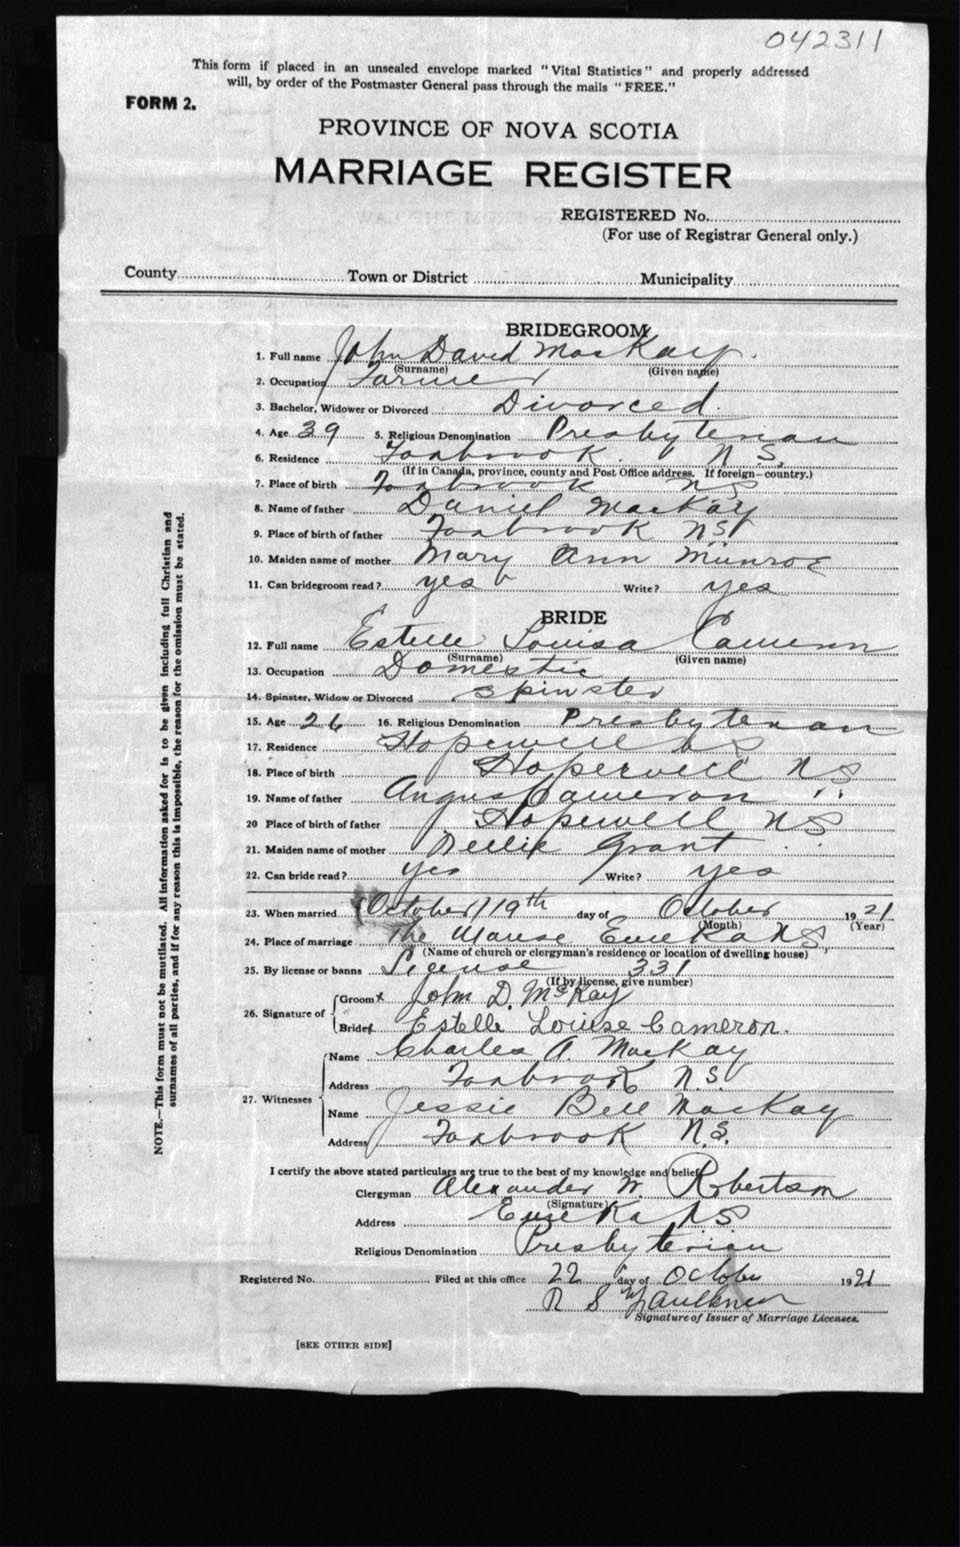 042311
This form if placed in an unsealed envelope marked "Vital Statistics" and properly addressed
will, by order of the Postmaster General pass through the mails "FREE."
FORM 2.
PROVINCE OF NOVA SCOTIA
MARRIAGE REGISTER
REGISTERED No.
(For use of Registrar General only.)
County Town or District Municipality
BRIDEGROOM
1. Full name John David MacKay.
(Surname) (Given name)
2. Occupation Farmer
3. Bachelor, Widower or Divorced Divorced.
4. Age 39 5. Religious Denomination Presbyterian
6. Residence Foxbrook N.S.
(If in Canada, province, county and Post Office address. If foreign—country.)
7. Place of birth Foxbrook NS
8. Name of father Daniel MacKay
9. Place of birth of father Foxbrook NS
10. Maiden name of mother Mary Ann Munroe
11. Can bridegroom read? yes Write? yes
BRIDE
12. Full name Estelle Louisa Cameron
(Surname) (Given name)
13. Occupation Domestic
14. Spinster, Widow or Divorced Spinster
15. Age 26 16. Religious Denomination Presbyterian
17. Residence Hopewell NS
18. Place of birth Hopewell NS
19. Name of father Angus Cameron
20 Place of birth of father Hopewell NS
21. Maiden name of mother Nellie Grant
22. Can bride read? yes Write? yes
23. When married October 19th day of October 1921
(Month) (Year)
24. Place of marriage The Manse Eureka NS
(Name of church or clergyman's residence or location of dwelling house)
25. By license or banns License 331
(If by license, give number)
26. Signature of
Groom x John D. McKay
Bride x Estelle Louise Cameron.
27. Witnesses
Name Charles A. MacKay
Address Foxbrook N.S.
Name Jessie Bell MacKay
Address Foxbrook N.S.
I certify the above stated particulars are true to the best of my knowledge and belief
Clergyman Alexander W. Robertson
(Signature)
Address Eureka NS
Religious Denomination Presbyterian
Registered No. Filed at this office 22 day of October 1921
R S Faulkner
Signature of Issuer of Marriage Licenses.
[SEE OTHER SIDE]
NOTE.—This form must not be mutilated. All information asked for is to be given including full Christian and
surnames of all parties, and if for any reason this is impossible, the reason for the omission must be stated.